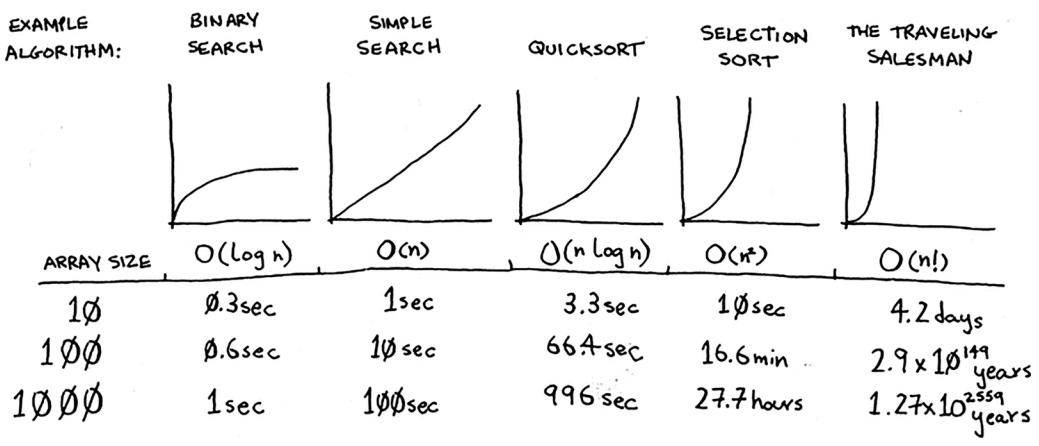 EXAMPLE ALGORITHM: BINARY SEARCH SIMPLE SEARCH QUICKSORT SELECTION SORT THE TRAVELING SALESMAN
ARRAY SIZE O(log n) O(n) O(n log n) O(n²) O(n!)
10 0.3sec 1sec 3.3sec 10sec 4.2 days
100 0.6sec 10sec 66.4sec 16.6min 2.9 x 10¹⁴⁹ years
1000 1sec 100sec 996 sec 27.7hours 1.27x10²⁵⁵⁹ years